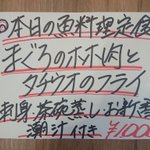 ◎本日の魚料理定食
まぐろのホホ肉と
タチウオのフライ
刺身 茶碗蒸し お新香
潮汁付き ¥1000